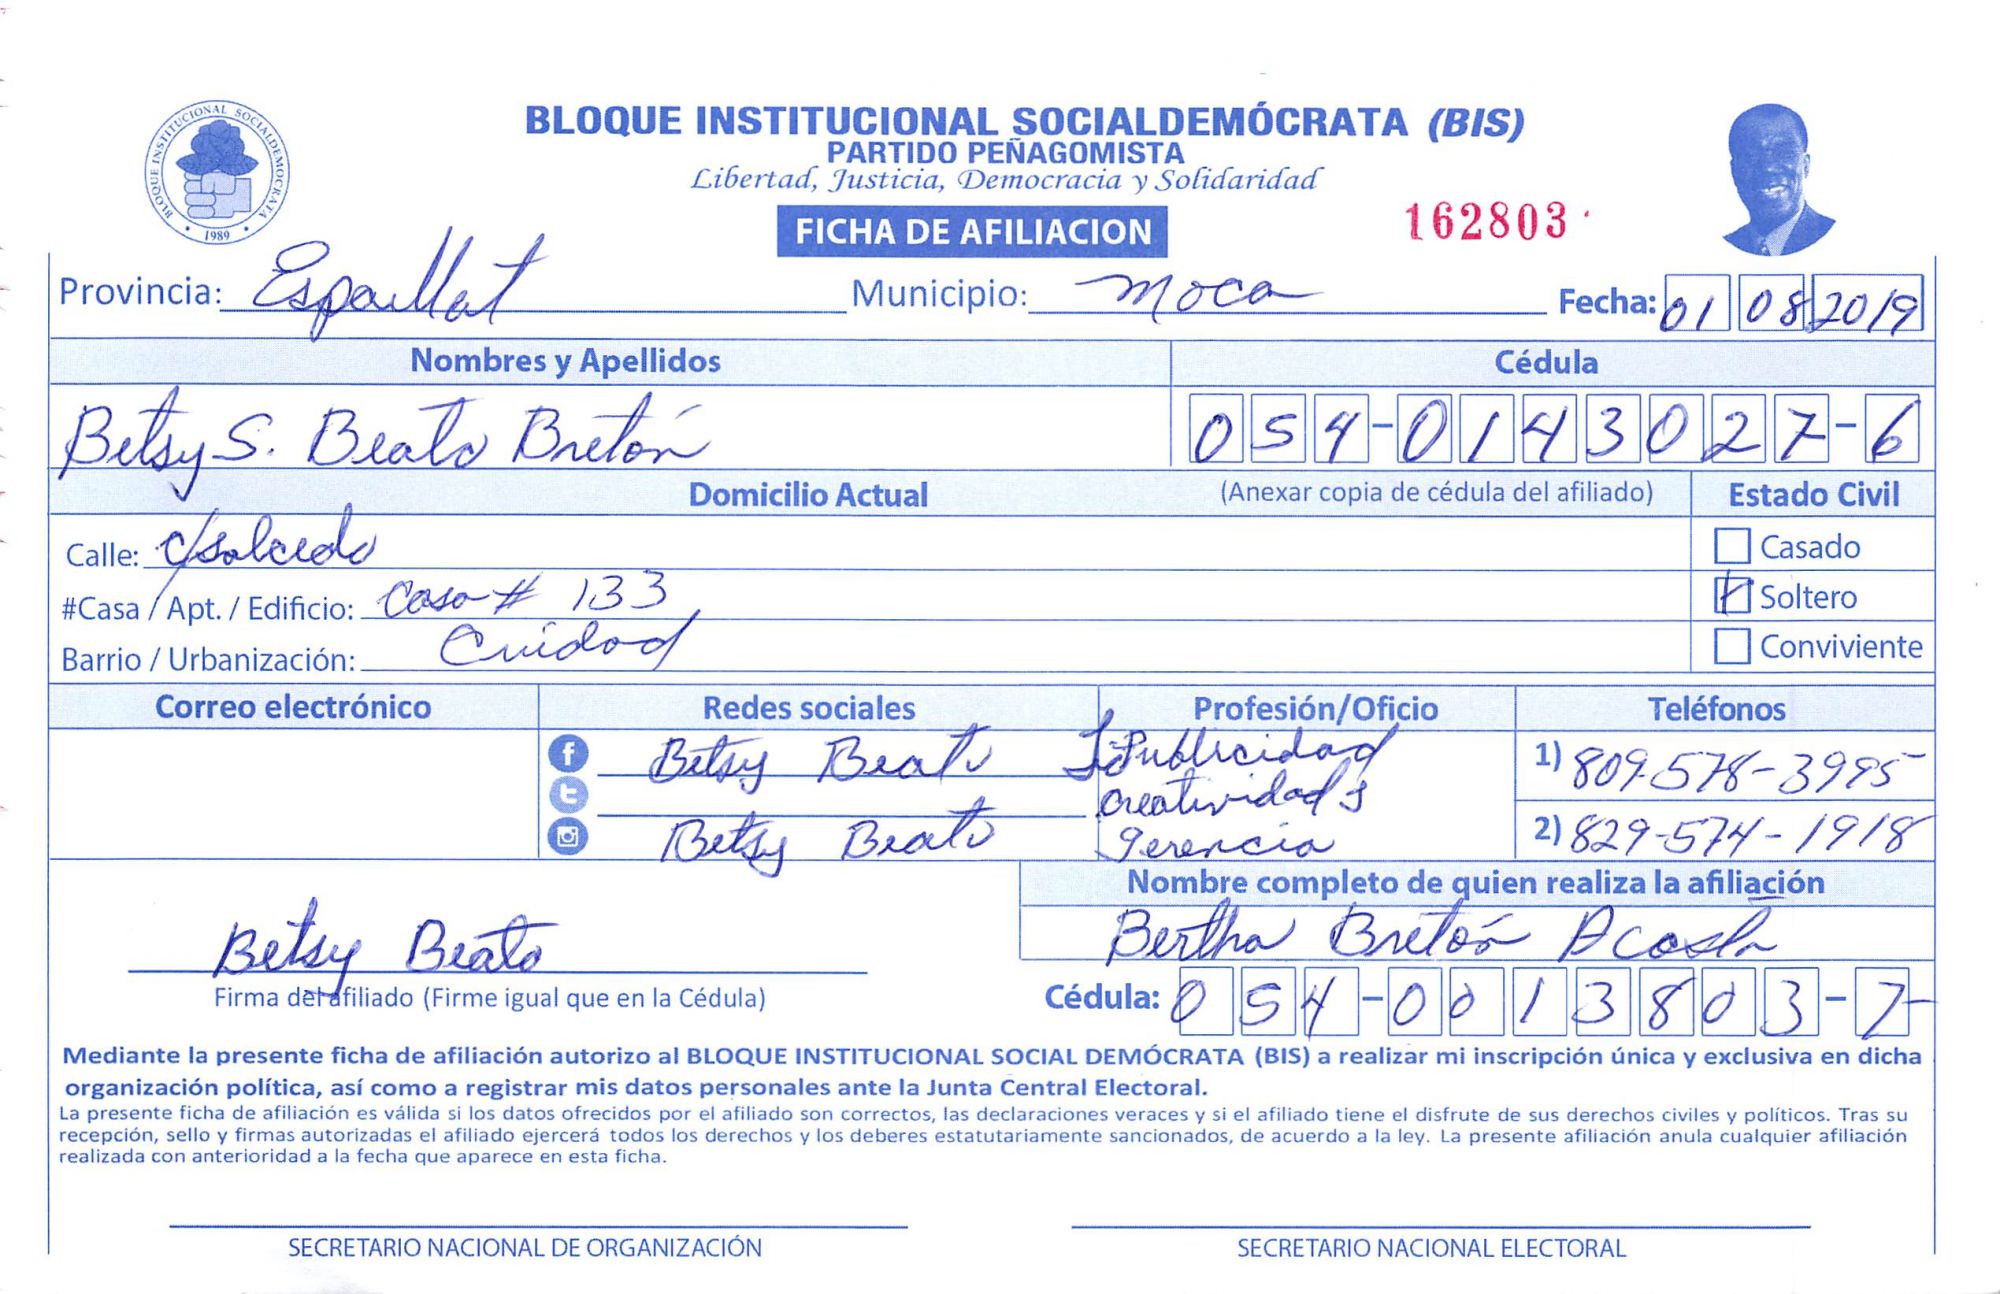 BLOQUE INSTITUCIONAL SOCIALDEMÓCRATA (BIS)
PARTIDO PEÑAGOMISTA
Libertad, Justicia, Democracia y Solidaridad
BLOQUE INSTITUCIONAL SOCIALDEMOCRATA
1989
FICHA DE AFILIACION
162803
Provincia: Espaillat Municipio: Moca Fecha: 01 08 2019
Nombres y Apellidos Cédula
Betsy S. Beato Bretón 054-0143027-6
Domicilio Actual (Anexar copia de cédula del afiliado) Estado Civil
Calle: c/Salcedo Casado
#Casa / Apt. / Edificio: Casa # 133 Soltero
Barrio / Urbanización: Cuidad Conviviente
Correo electrónico Redes sociales Profesión/Oficio Teléfonos
Betsy Beato Publicidad 1) 809-578-3995
creatividad y
Betsy Beato gerencia 2) 829-574-1918
Nombre completo de quien realiza la afiliación
Betsy Beato Bertha Bretón Acosta
Firma del afiliado (Firme igual que en la Cédula) Cédula: 054-0013803-7
Mediante la presente ficha de afiliación autorizo al BLOQUE INSTITUCIONAL SOCIAL DEMÓCRATA (BIS) a realizar mi inscripción única y exclusiva en dicha
organización política, así como a registrar mis datos personales ante la Junta Central Electoral.
La presente ficha de afiliación es válida si los datos ofrecidos por el afiliado son correctos, las declaraciones veraces y si el afiliado tiene el disfrute de sus derechos civiles y políticos. Tras su
recepción, sello y firmas autorizadas el afiliado ejercerá todos los derechos y los deberes estatutariamente sancionados, de acuerdo a la ley. La presente afiliación anula cualquier afiliación
realizada con anterioridad a la fecha que aparece en esta ficha.
SECRETARIO NACIONAL DE ORGANIZACIÓN SECRETARIO NACIONAL ELECTORAL